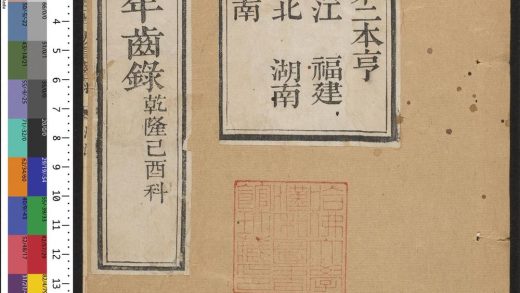 二本亨
江 福建
北 湖南
南
年齒錄 乾隆己酉科
哈佛大學
漢和圖書
館珍藏印
4
5
6
7
8
9
10
11
12
13